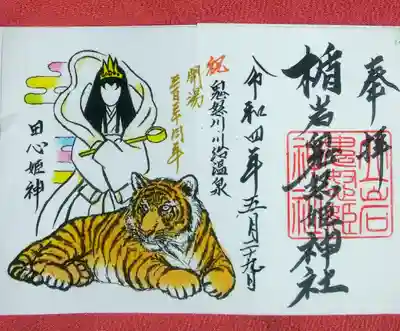 奉拝
楯岩鬼怒姫神社
令和四年五月二十九日
祝 鬼怒川川治温泉
開湯
三百三十周年
田心姫神